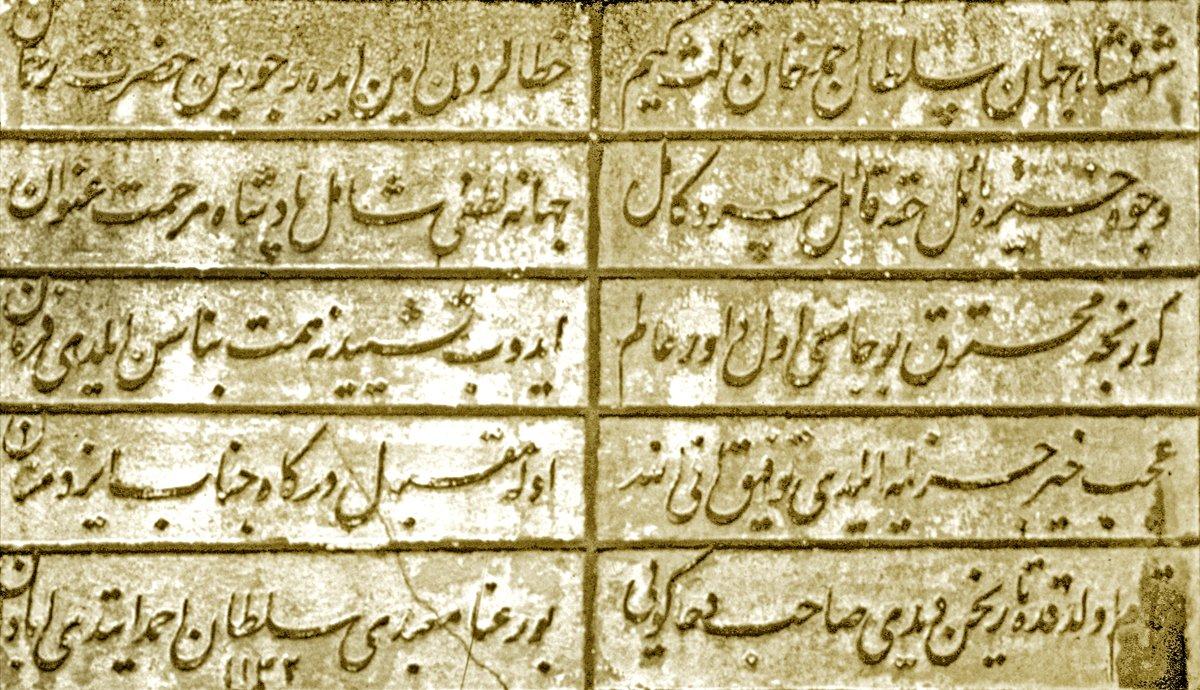 شهنشاه جهان سلطان احمد خان ثالث كيم
خطالردن امين ايده وجودين حضرت رحمان
وجوه خيره مائل حقه قائل خسرو كامل
جهانه لطفى شامل پادشاه مرحمت عنوان
كورنجه محترق بو جامعى اول داور عالم
ايدوب تشييدينه همت بناسن ايلدى فرمان
عجب خير جزيله ايلدى توفيق انى
اوله مقبول دركاه جناب ايزد منان
اولدقده تاريخن ديدى صاحب دعاكويى
بو رعنا معبدى سلطان احمد ايتدى آبادان
١١٤٢